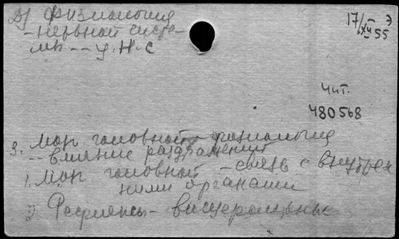 Д) Физиология
- нервной систе-
мы -- Ц.Н.С
17/XII Э
55
Чит.
480568
3. Мозг головной - физиология
-- влияние раздражения
1. Мозг головной - связь с внутрен
ними органами
2) Рефлексы - висцеральные